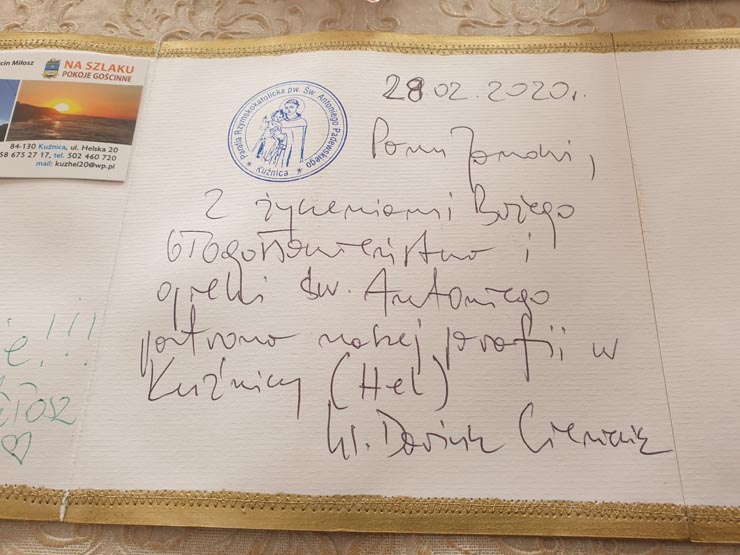 cin Miłosz
NA SZLAKU
POKOJE GOŚCINNE
84-130 Kuźnica, ul. Helska 20
58 675 27 17, tel. 502 460 720
mail: kuzhel20@wp.pl
Parafia Rzymskokatolicka pw. Św. Antoniego Padewskiego
* Kuźnica *
28.02.2020r.
Panu
Z życzeniami Bożego
błogosławieństwa i
opieki św. Antoniego
patrona naszej parafii w
Kuźnicy (Hel)
ks.
!!!